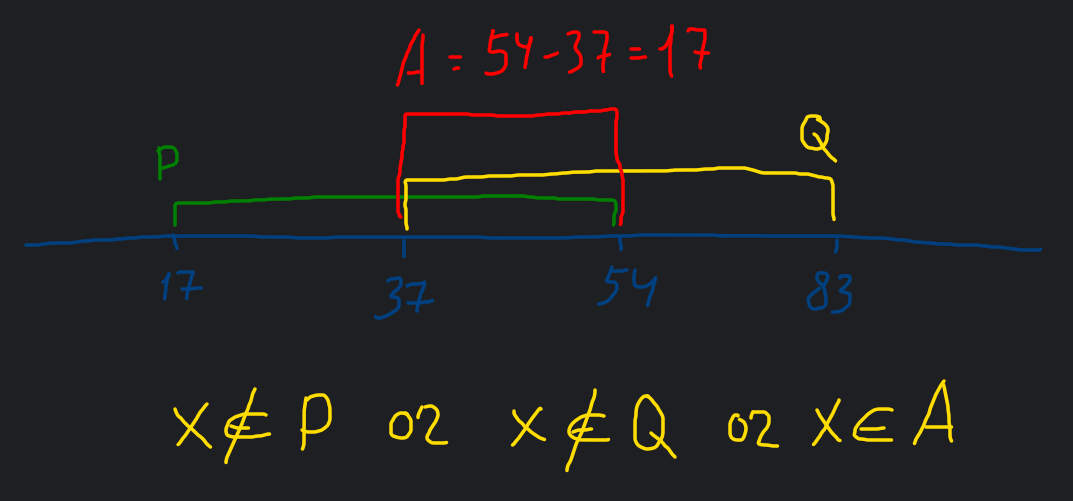 A = 54-37=17
P
Q
17 37 54 83
x∉P or x∉Q or x∈A